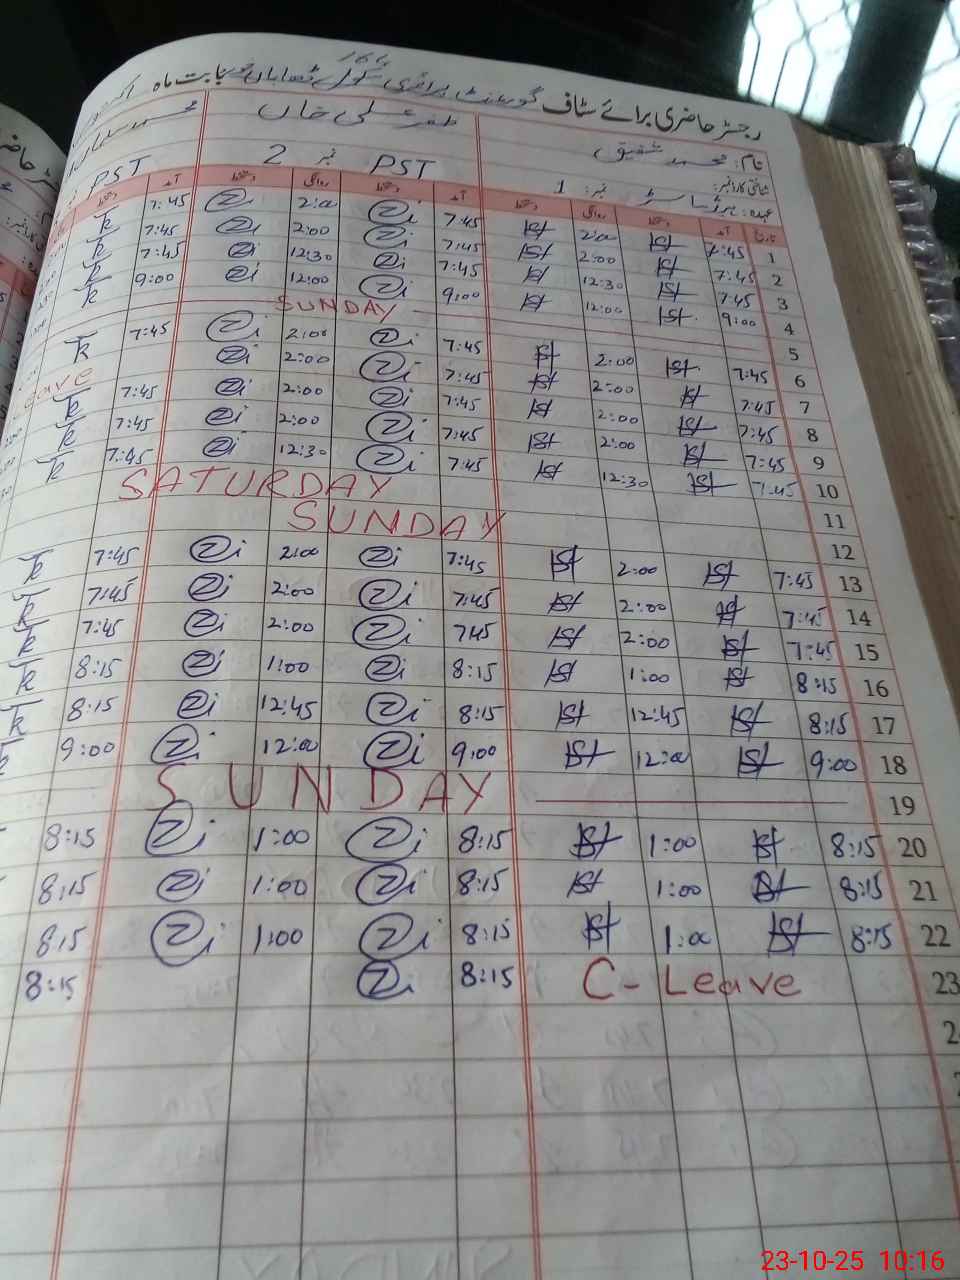 رجسٹر حاضری برائے سٹاف گورنمنٹ پرائمری سکول بابت ماہ
نام: محمد شفیق ظفر علی خاں محمد
شناختی کارڈ نمبر:
عہدہ: نمبر: 1 PST نمبر 2 PST
تاریخ آمد دستخط روانگی دستخط آمد دستخط روانگی دستخط آمد دستخط
1 7:45 2:00 7:45 2:00 7:45
2 7:45 2:00 7:45 2:00 7:45
3 7:45 12:30 7:45 12:30 7:45
4 9:00 12:00 9:00 12:00 9:00
5 SUNDAY
6 7:45 2:00 7:45 2:00 7:45
7 7:45 2:00 7:45 2:00 Leave
8 7:45 2:00 7:45 2:00 7:45
9 7:45 2:00 7:45 2:00 7:45
10 7:45 12:30 7:45 12:30 7:45
11 SATURDAY
12 SUNDAY
13 7:45 2:00 7:45 2:00 7:45
14 7:45 2:00 7:45 2:00 7:45
15 7:45 2:00 7:45 2:00 7:45
16 8:15 1:00 8:15 1:00 8:15
17 8:15 12:45 8:15 12:45 8:15
18 9:00 12:00 9:00 12:00 9:00
19 SUNDAY
20 8:15 1:00 8:15 1:00 8:15
21 8:15 1:00 8:15 1:00 8:15
22 8:15 1:00 8:15 1:00 8:15
23 C-Leave 8:15 8:15
23-10-25 10:16